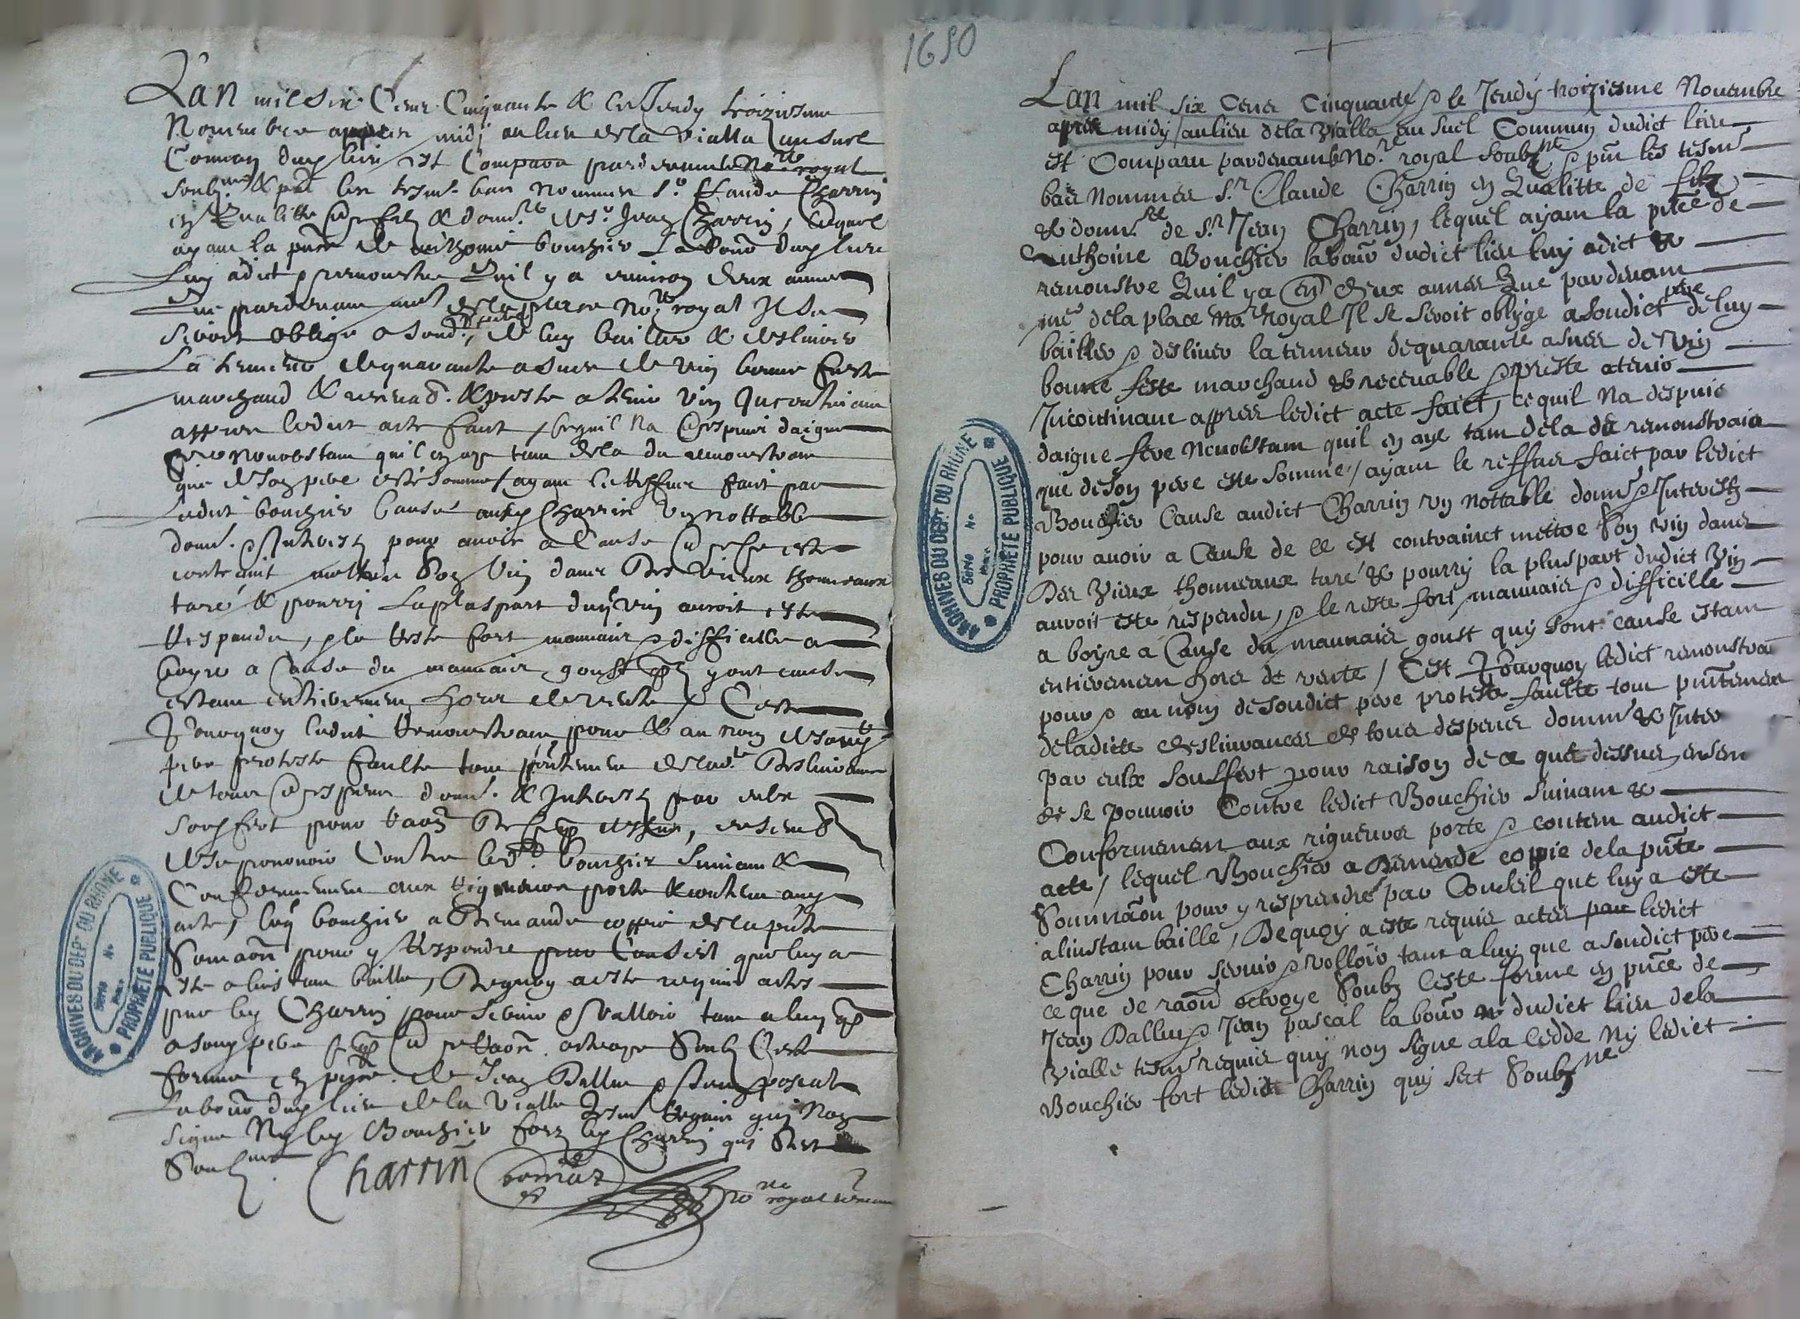 L'an mil six Cens Cinquante & le Jeudy troiziesme
Novembre apres midj au lieu de la Vialla au suel
Commun dud lieu est Comparu pardevant le No.re royal
soubz.né & pnt les tesm. bas nommes S.r Claude Charrin
en Quallitte de filz & dom.re de S.r Jean Charrin, lequel
ayant la pnce de Anthoine bouchier Labour dud lieu
Luy a dict & remonstre Quil y a environ deux annees
Que pardevant me de la place No.re royal Il se
seroit oblige a sond. pere de luy bailler & deslivrer
La teneur de quarante asnee de vin bonne feste
marchand & recevab. & preste a tenir vin Incontinant
appres ledict acte faict, ce quil na despuis daigne
fere nonobstant quil en aye tant de la du remonstrant
que de son pere este somme / ayant le reffus faict par
Ledict bouchier Cause aud Charrin un nottable
dom. & Interestz pour avoir a Cause de ce este
contrainct mettre son vin dans des vieux thonneaux
taré & pourri La pluspart dud vin auroit este
respandu, & le reste fort mauvais & difficille a
boyre a Cause du mauvais goust qui y ont cause
estant entierement hors de vente / C'est
Pourquoy ledict Remonstrant pour & au nom de sond
pere proteste faulte tant pntement de lad. Deslivrance
de tous despens dom. & Interestz par eulx
souffert pour raison de ce que dessus, ensemb
de se pourvoir Contre led bouchier suivant &
Conformement aux rigueurs porte & contenu aud
acte, leq bouchier a Demande coppie de la pnte
Somaon pour y Respondre par Conseil que luy a
este a linstant baille, Dequoy a este requis actes
par led Charrin pour servir & valloir tant a luy q
a sond pere ce q de raon. octroye soubz C'este
forme en pnce de Jean Dallue & Jean pascal
Labour dud lieu de la Vialle tesm requis qui non
signe Ny led Bouchier fors led Charrin qui s'est
Soubz.né Charrin
royal
1650
L'an mil six Cens Cinquante & le Jeudy troiziesme Novembre
apres midy / au lieu de la Vialla au suel Commun dudict lieu
est Comparu pardevant le No.re royal soubz.né & pnt les tesm
bas nommes S.r Claude Charrin en Qualitte de filz
& dom.re de S.r Jean Charrin, lequel ayant la pnce de
Anthoine Bouchier labour dudict lieu luy a dict &
remonstre Quil y a env deux annes Que pardevant
me de la place No.re Royal Il se seroit oblige a soudict pere de luy
bailler & deslivrer la teneur de quarante asnes de vin
bonne feste marchand & recevable & preste a tenir
Incontinant appres ledict acte faict, ce quil na despuis
daigne fere Nonobstant quil en aye tant de la du remonstrant
que de son pere este somme / ayant le reffus faict par ledict
Bouchier Cause audict Charrin un nottable dom & Interestz
pour avoir a Cause de ce est contrainct mettre son vin dans
Des vieux thonneaux taré & pourry la pluspart dudict vin
auroit este respendu, & le reste fort mauvais & difficille
a boyre a Cause du mauvais goust quy sont cause estant
entierement hors de vente / C'est Pourquoy ledict remonstrant
pour & au nom de soudict pere proteste faulte tant pntement
de ladicte deslivrances de tous despens domm & Inter
par eulx souffert pour raison de ce que dessus, ensem
de se pouvoir Contre ledict Bouchier suivant &
Conformement aux rigueures porte & contenu audict
acte / lequel Bouchier a Demende coppie de la pnte
Sommaon pour y respendre par Conseil que luy a este
a linstant baille, Dequoy a este requis actes par ledict
Charrin pour servir & valloir tant a luy que a soudict pere
ce que de raon octroye soubz ceste forme en pnce de
Jean Dallue & Jean pascal labour dudict lieu de la
Vialle tesm requis quy non signe a la cedde Ny ledict
Bouchier fort ledict Charrin quy sest soubz.né
ARCHIVES DU DEP.T DU RHÔNE
PROPRIÉTÉ PUBLIQUE
Série
No
ARCHIVES DU DEP.T DU RHÔNE
PROPRIÉTÉ PUBLIQUE
Série
No